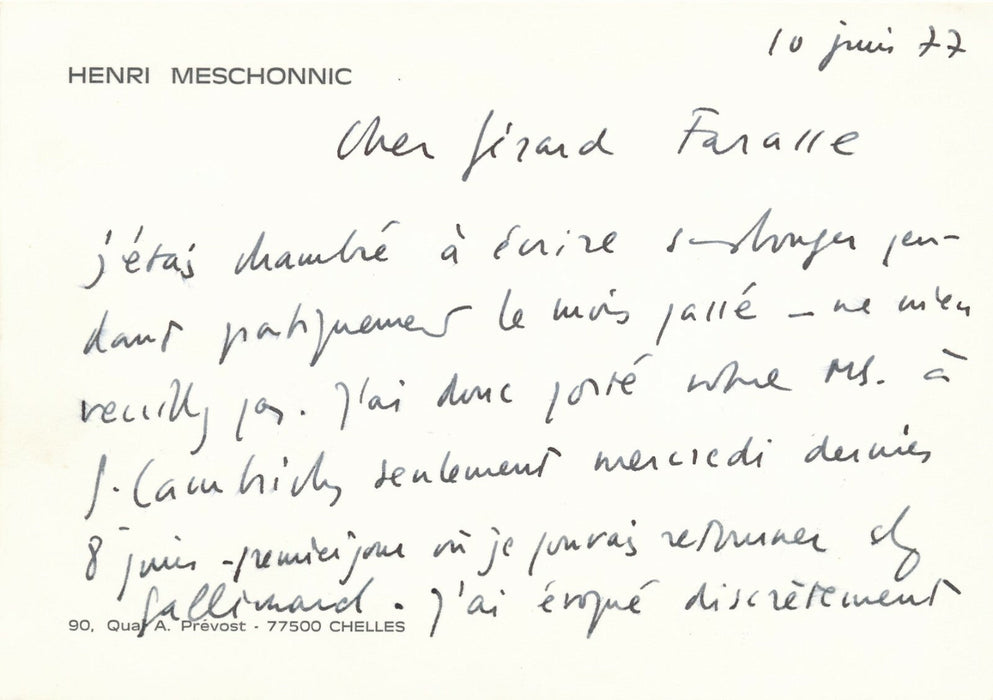 10 juin 77
HENRI MESCHONNIC
Cher Gérard Farasse
j'étais chambré à écrire sans bouger pen-
dant pratiquement le mois passé – ne m'en
veuillez pas. J'ai donc porté votre MS. à
G. Lambrichs seulement mercredi dernier
8 juin – premier jour où je pouvais retourner chez
Gallimard. J'ai évoqué discrètement
90, Quai A. Prévost - 77500 CHELLES